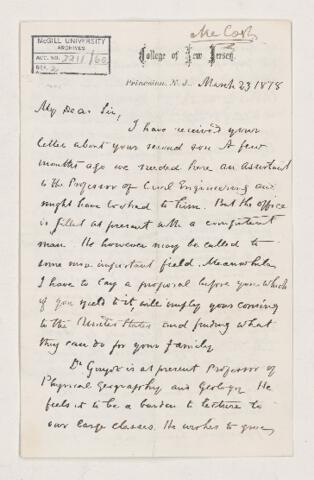 McCosh
McGILL UNIVERSITY
ARCHIVES
ACC. NO. 2211/60
REF. 2
College of New Jersey,
Princeton, N. J., March 23 1878
My Dear Sir,
I have received your
letter about your second son. A few
months ago we needed here an Assistant
to the Professor of Civil Engineering and
might have looked to him. But the office
is filled at present with a competent
man. He however may be called to
some more important field. Meanwhile
I have to lay a proposal before you which
if you yield to it, will imply your coming
to the United States and finding what
they can do for your family
Dr Guyot is at present Professor of
Physical Geography and Geology. He
feels it to be a burden to lecture to
our large classes. He wishes to give